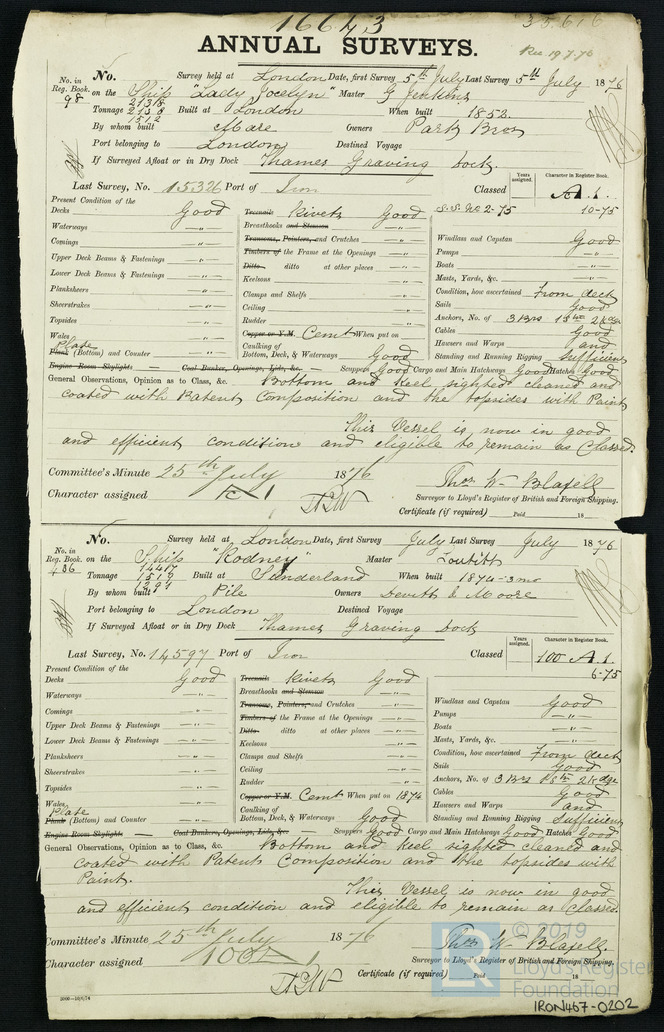 16643
35616
ANNUAL SURVEYS.
Rec 19.7.76
No. in Reg. Book. 98
No. Survey held at London Date, first Survey 5th July Last Survey 5th July 1876
on the Ship "Lady Jocelyn" Master G Jenkins
Tonnage 2138 1512 Built at London When built 1852
By whom built Mare Owners Park Bros
Port belonging to London Destined Voyage
If Surveyed Afloat or in Dry Dock Thames Graving Dock.
Last Survey, No. 15326 Port of Iron Classed Years assigned. Character in Register Book. A.1.
S.S. No 2-75 10-75
Present Condition of the
Decks Good
Waterways "
Comings "
Upper Deck Beams & Fastenings "
Lower Deck Beams & Fastenings "
Planksheers "
Sheerstrakes "
Topsides "
Wales "
Plate
Plank (Bottom) and Counter "
Engine Room Skylights — Coal Bunker, Openings, Lids, &c. —
Treenails Rivets Good
Breasthooks and Stemson "
Transoms, Pointers, and Crutches "
Timbers of the Frame at the Openings "
Ditto ditto at other places "
Keelsons "
Clamps and Shelfs "
Ceiling "
Rudder "
Copper or Y.M. Cemt When put on
Caulking of Bottom, Deck, & Waterways Good
Windlass and Capstan Good
Pumps "
Boats "
Masts, Yards, &c. "
Condition, how ascertained From deck
Sails Good
Anchors, No. of 3 Brs 1 Stm 2 Kdge
Cables Good
Hawsers and Warps and
Standing and Running Rigging Sufficient
Scuppers Good Cargo and Main Hatchways Good Hatches Good
General Observations, Opinion as to Class, &c. Bottom and Keel sighted cleaned and
coated with Patent Composition and the topsides with Paint,
This Vessel is now in good
and efficient condition and eligible to remain as Classed.
Committee's Minute 25th July 1876
Character assigned A 1
Thos Wm Blaxell
Surveyor to Lloyd's Register of British and Foreign Shipping.
Certificate (if required) Paid 18
No. in Reg. Book. 436
No. Survey held at London Date, first Survey July Last Survey July 1876
on the Ship "Rodney" Master Loutitt
Tonnage 1447 1519 Built at Sunderland When built 1874-3mo
By whom built Pile Owners Devitt & Moore
Port belonging to London Destined Voyage
If Surveyed Afloat or in Dry Dock Thames Graving Dock
Last Survey, No. 14597 Port of Iron Classed Years assigned. Character in Register Book. 100 A.1.
6-75
Present Condition of the
Decks Good
Waterways "
Comings "
Upper Deck Beams & Fastenings "
Lower Deck Beams & Fastenings "
Planksheers "
Sheerstrakes "
Topsides "
Wales "
Plate
Plank (Bottom) and Counter "
Engine Room Skylights — Coal Bunkers, Openings, Lids, &c. —
Treenails Rivets Good
Breasthooks and Stemson "
Transoms, Pointers, and Crutches "
Timbers of the Frame at the Openings "
Ditto ditto at other places "
Keelsons "
Clamps and Shelfs "
Ceiling "
Rudder "
Copper or Y.M. Cemt When put on 1874
Caulking of Bottom, Deck, & Waterways Good
Windlass and Capstan Good
Pumps "
Boats "
Masts, Yards, &c. "
Condition, how ascertained From deck
Sails Good
Anchors, No. of 3 Brs 1 Stm 2 Kdge
Cables Good
Hawsers and Warps and
Standing and Running Rigging Sufficient
Scuppers Good Cargo and Main Hatchways Good Hatches Good
General Observations, Opinion as to Class, &c. Bottom and Keel sighted cleaned and
coated with Patent Composition and the topsides with
Paint.
This Vessel is now in good
and efficient condition and eligible to remain as Classed.
Committee's Minute 25th July 1876
Character assigned 100 A 1
Thos Wm Blaxell.
Surveyor to Lloyd's Register of British and Foreign Shipping.
Certificate (if required) Paid 18
LR
© 2019
Lloyd's Register
Foundation
IRON467-0202